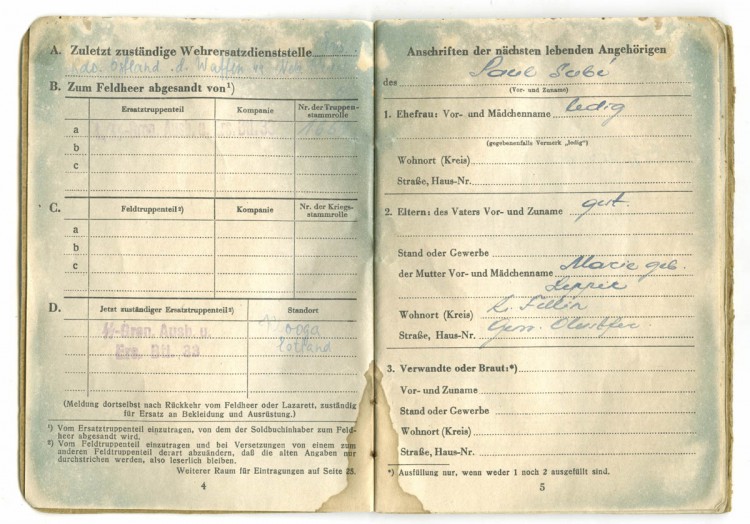 A. Zuletzt zuständige Wehrersatzdienststelle
Kdo. Ostland d. Waffen
B. Zum Feldheer abgesandt von¹)
Ersatztruppenteil Kompanie Nr. der Truppen-
stammrolle
a
b
c
C. Feldtruppenteil²) Kompanie Nr. der Kriegs-
stammrolle
a
b
c
D. Jetzt zuständiger Ersatztruppenteil²) Standort
Gren. Ausb. u.
Ers. Btl.
Estland
(Meldung dortselbst nach Rückkehr vom Feldheer oder Lazarett, zuständig
für Ersatz an Bekleidung und Ausrüstung.)
¹) Vom Ersatztruppenteil einzutragen, von dem der Soldbuchinhaber zum Feld-
heer abgesandt wird.
²) Vom Feldtruppenteil einzutragen und bei Versetzungen von einem zum
anderen Feldtruppenteil derart abzuändern, daß die alten Angaben nur
durchstrichen werden, also leserlich bleiben.
Weiterer Raum für Eintragungen auf Seite
4
Anschriften der nächsten lebenden Angehörigen
des
(Vor- und Zuname)
1. Ehefrau: Vor- und Mädchenname ledig
(gegebenenfalls Vermerk „ledig")
Wohnort (Kreis)
Straße, Haus-Nr.
2. Eltern: des Vaters Vor- und Zuname gest.
Stand oder Gewerbe
der Mutter Vor- und Mädchenname Marie geb.
Wohnort (Kreis) K. Fellin
Straße, Haus-Nr.
3. Verwandte oder Braut:*)
Vor- und Zuname
Stand oder Gewerbe
Wohnort (Kreis)
Straße, Haus-Nr.
*) Ausfüllung nur, wenn weder 1 noch 2 ausgefüllt sind.
5